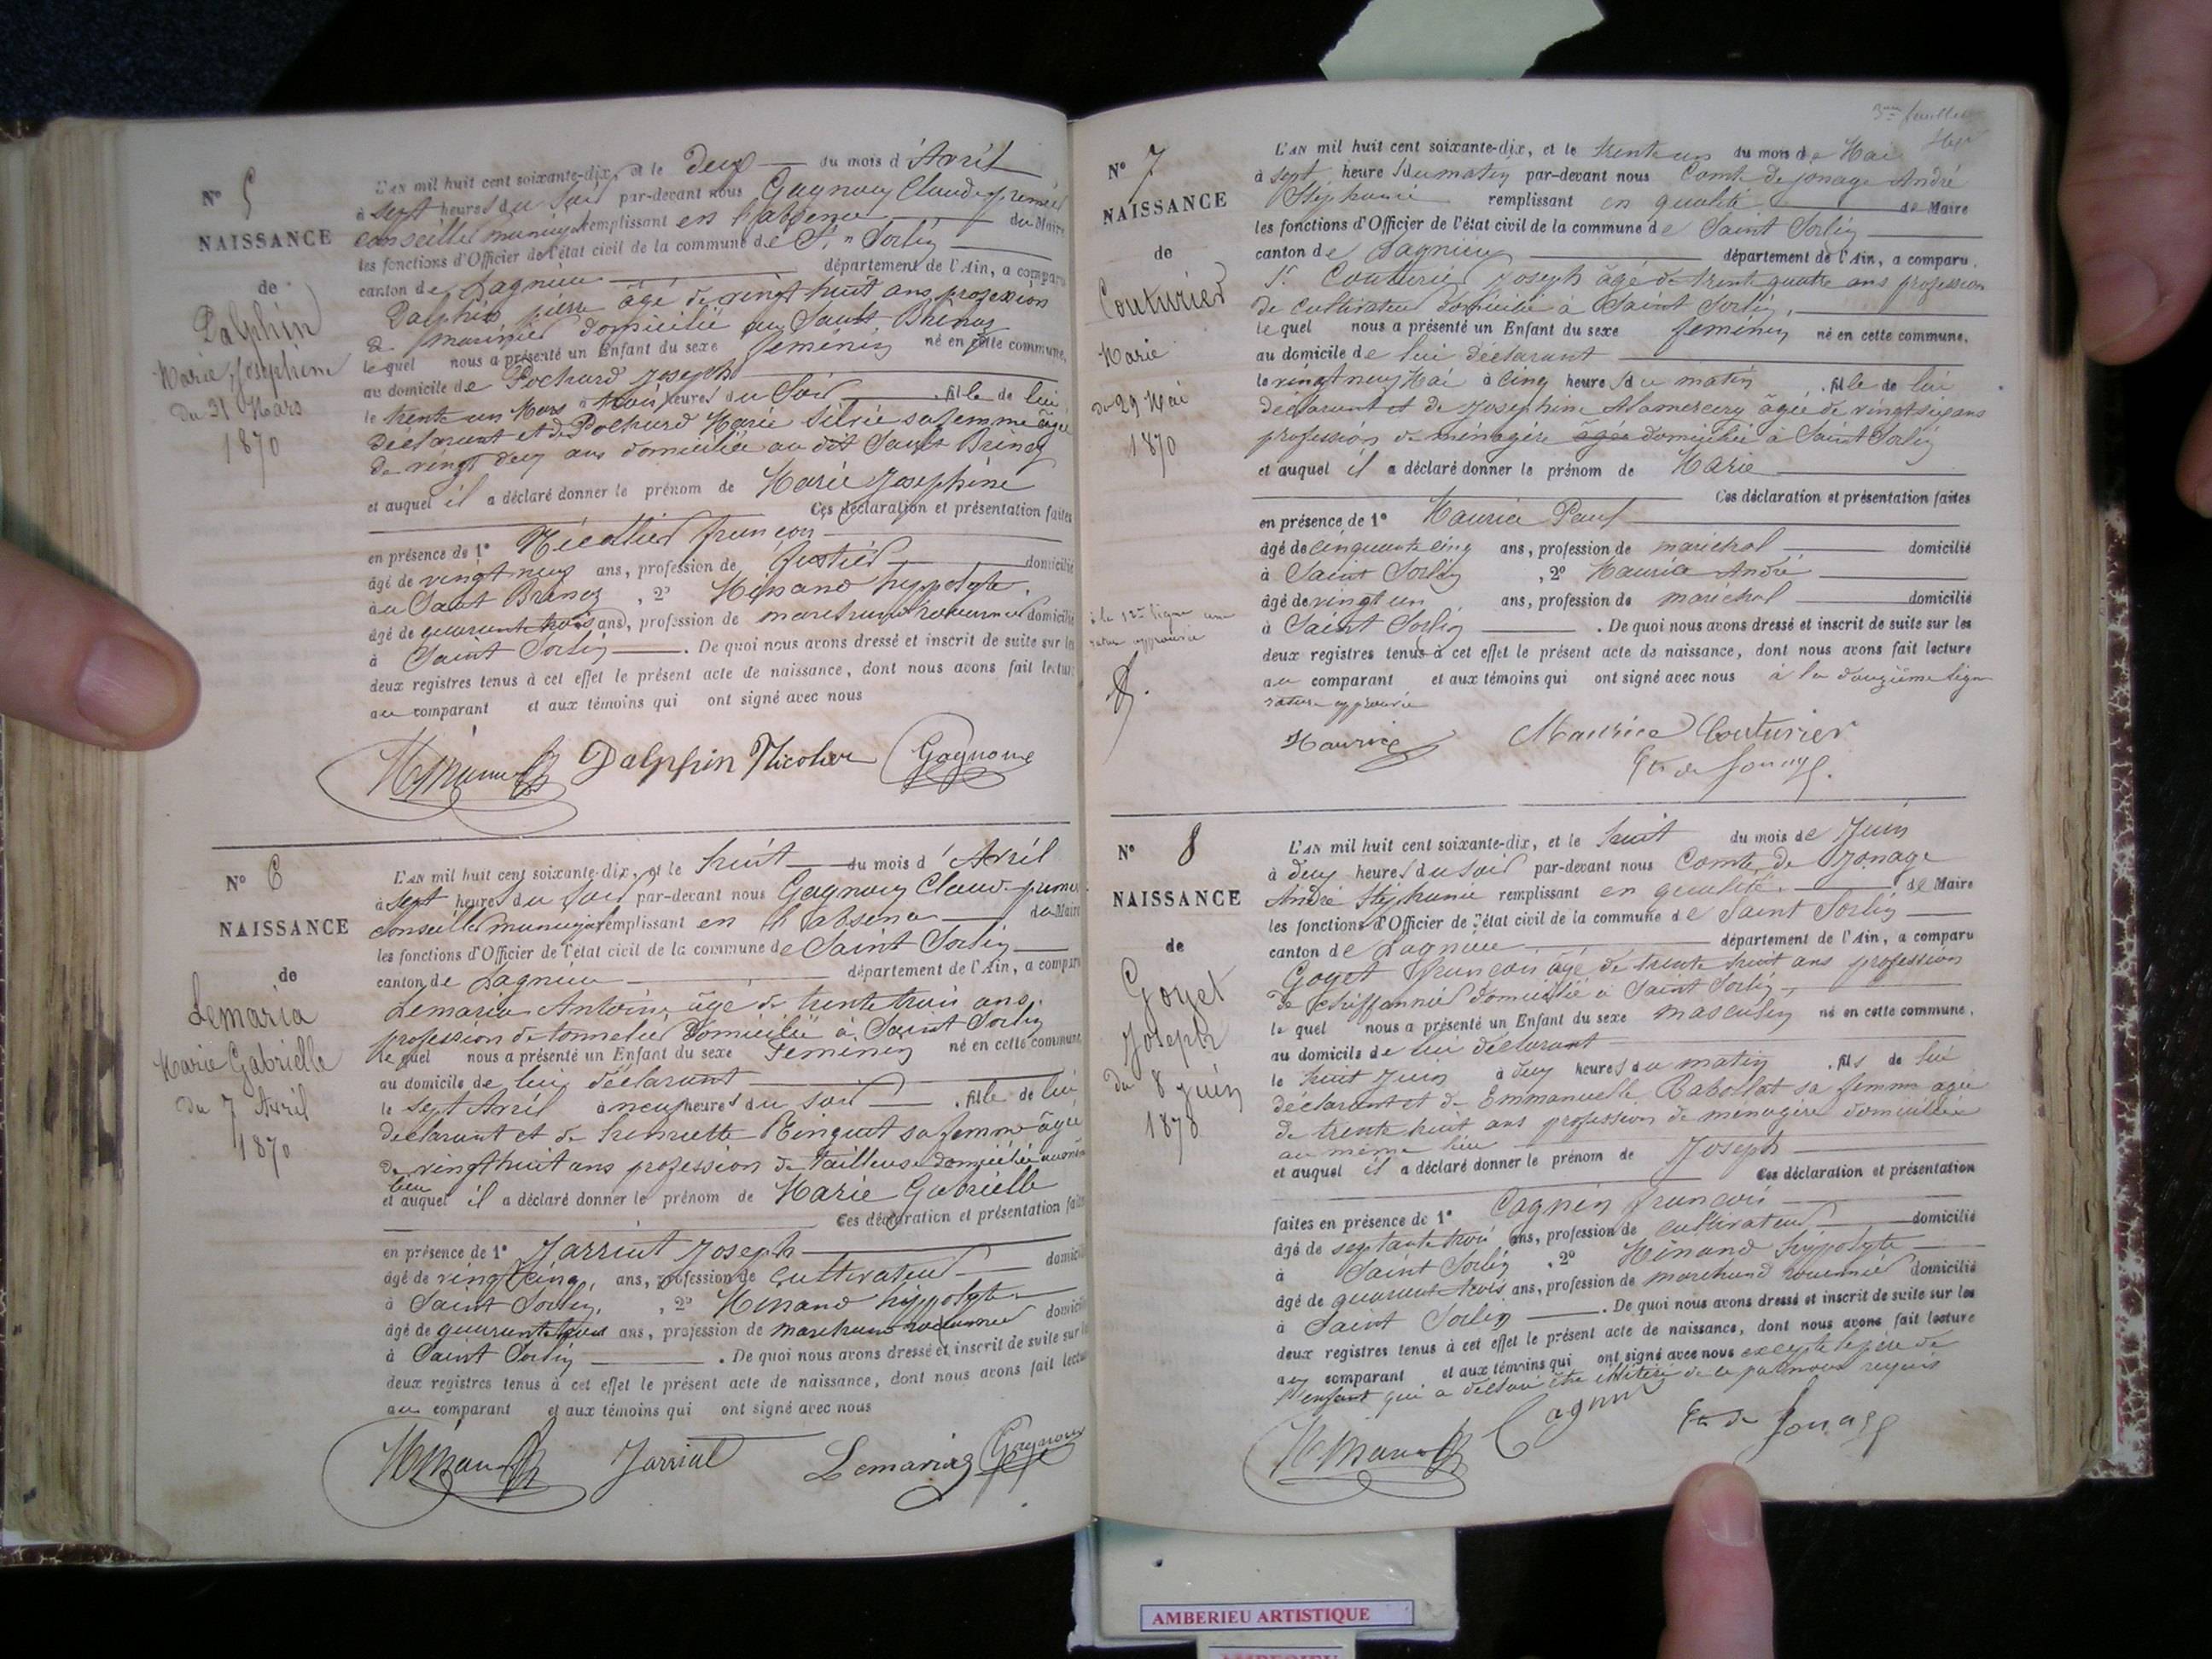 N° 5
NAISSANCE
de
Dalphin
Marie Joséphine
Du 31 Mars
1870
L'AN mil huit cent soixante-dix, et le Deux du mois d'Avril
à sept heures du soir par-devant nous Gagnoux Claude premier
conseiller municipal remplissant en l'absence du Maire
les fonctions d'Officier de l'état civil de la commune de St Sorlin
canton de Lagnieu département de l'Ain, a comparu
Dalphin pierre âgé de vingt huit ans profession
de marinier domicilié au Sault Brénaz
lequel nous a présenté un Enfant du sexe féminin né en cette commune,
au domicile de Pochard Joseph
le trente un Mars à heures du Soir , fille de lui
déclarant et de Pochard Marie Silvie sa femme âgée
de vingt deux ans domiciliée au dit Sault Brénaz
et auquel il a déclaré donner le prénom de Marie Joséphine
Ces déclaration et présentation faites
en présence de 1° Nicollier françois
âgé de vingt neuf ans, profession de domicilié
au Saut Brénaz , 2° Ménand hyppolyte
âgé de quarante trois ans, profession de marchand rouennier domicilié
à Saint Sorlin . De quoi nous avons dressé et inscrit de suite sur les
deux registres tenus à cet effet le présent acte de naissance, dont nous avons fait lecture
au comparant et aux témoins qui ont signé avec nous
Ménand Dalphin Nicolier Gagnoux
N° 6
NAISSANCE
de
Lemaria
Marie Gabrielle
Du 7 Avril
1870
L'AN mil huit cent soixante-dix, et le huit du mois d'Avril
à sept heures du soir par-devant nous Gagnoux Claude premier
conseiller municipal remplissant en l'absence du Maire
les fonctions d'Officier de l'état civil de la commune de Saint Sorlin
canton de Lagnieu département de l'Ain, a comparu
Lemaria Antoine âgé de trente trois ans
profession de tonnelier Domicilié à Saint Sorlin
lequel nous a présenté un Enfant du sexe Féminin né en cette commune
au domicile de lui déclarant
le sept Avril à neuf heures du soir , fille de lui
déclarant et de henriette Ringuet sa femme âgée
de vingt huit ans profession de tailleuse domiciliée au même
lieu
et auquel il a déclaré donner le prénom de Marie Gabrielle
Ces déclaration et présentation faites
en présence de 1° Jarrint Joseph
âgé de vingt cinq, ans, profession de cultivateur domicilié
à Saint Sorlin, , 2° Ménand hyppolyte
âgé de quarante trois ans, profession de marchand rouennier domicilié
à Saint Sorlin . De quoi nous avons dressé et inscrit de suite sur les
deux registres tenus à cet effet le présent acte de naissance, dont nous avons fait lecture
au comparant et aux témoins qui ont signé avec nous
Ménand Lemaria Gagnoux
3me feuillet
N° 7
NAISSANCE
de
Couturier
Marie
du 29 Mai
1870
à la 12me ligne une
rature approuvée
L'AN mil huit cent soixante-dix, et le trente un du mois de Mai
à sept heures du matin par-devant nous Comte de Jonage André
Stéphanie remplissant en qualité de Maire
les fonctions d'Officier de l'état civil de la commune de Saint Sorlin
canton de Lagnieu département de l'Ain, a comparu.
Sr Couturier Joseph âgé de trente quatre ans profession
de cultivateur domicilié à Saint Sorlin,
le quel nous a présenté un Enfant du sexe féminin né en cette commune.
au domicile de lui déclarant
le vingt neuf Mai à cinq heures du matin , fille de lui
déclarant et de Joséphine Alamercery âgée de vingt six ans
profession de ménagère âgée domiciliée à Saint Sorlin
et auquel il a déclaré donner le prénom de Marie
Ces déclaration et présentation faites
en présence de 1° Mauricé Paul
âgé de cinquante cinq ans, profession de maréchal domicilié
à Saint Sorlin , 2° Mauricé André
âgé de vingt un ans, profession de maréchal domicilié
à Saint Sorlin . De quoi nous avons dressé et inscrit de suite sur les
deux registres tenus à cet effet le présent acte de naissance, dont nous avons fait lecture
au comparant et aux témoins qui ont signé avec nous à la douzième ligne
rature approuvée
Maurice Maurice Couturier
Cte de Jonage.
N° 8
NAISSANCE
de
Goyet
Joseph
du 8 juin
1870
L'AN mil huit cent soixante-dix, et le huit du mois de Juin
à deux heures du soir par-devant nous Comte de Jonage
André Stéphanie remplissant en qualité de Maire
les fonctions d'Officier de l'état civil de la commune de Saint Sorlin
canton de Lagnieu département de l'Ain, a comparu
Goyet françois âgé de trente huit ans profession
de chiffonnier domicilié à Saint Sorlin,
le quel nous a présenté un Enfant du sexe masculin né en cette commune.
au domicile de lui déclarant
le huit Juin à deux heures du matin , fils de lui
déclarant et de Emmanuelle Rabollat sa femme agée
de trente huit ans profession de ménagère domiciliée
au même lieu
et auquel il a déclaré donner le prénom de Joseph
Ces déclaration et présentation
faites en présence de 1° Cagnin francois
âgé de septante trois ans, profession de cultivateur domicilié
à Saint Sorlin , 2° Ménand hyppolyte
âgé de quarante trois, ans, profession de marchand rouennier domicilié
à Saint Sorlin . De quoi nous avons dressé et inscrit de suite sur les
deux registres tenus à cet effet le présent acte de naissance, dont nous avons fait lecture
au comparant et aux témoins qui ont signé avec nous excepté le père de
l'enfant qui a déclaré être illitéré de ce par nous requis
Ménand Cagnin Cte de Jonage
AMBERIEU ARTISTIQUE
AMBERIEU